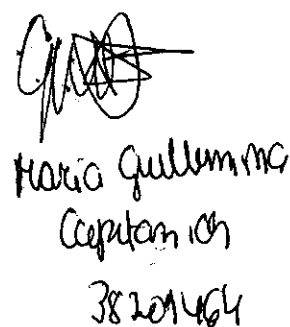 Maria Guillermina
Capitanich
38209464